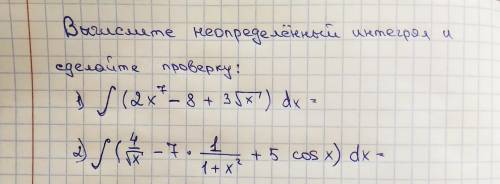 Вычислите неопределённый интеграл и
сделайте проверку:
1) ∫ (2x⁷ - 8 + 3√x) dx =
2) ∫ (4/√x - 7 · 1/(1+x²) + 5 cos x) dx =